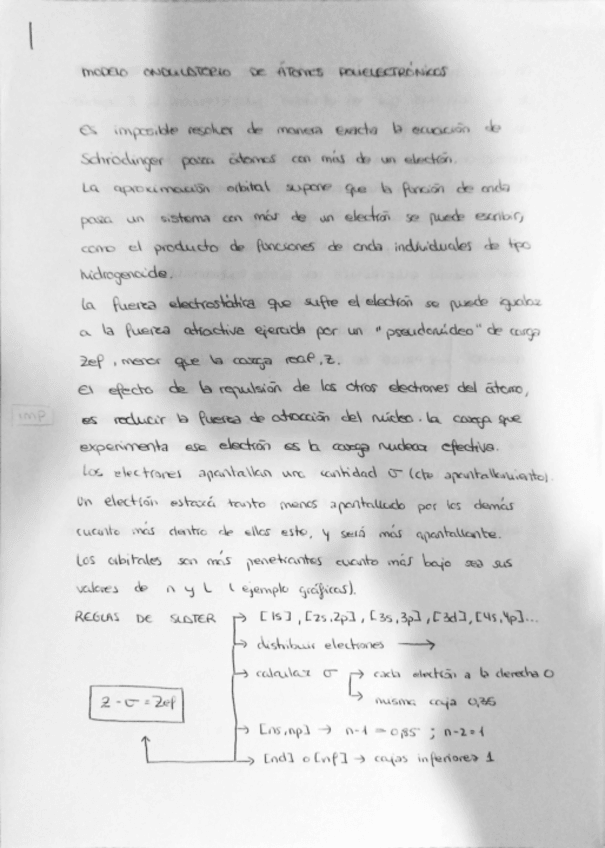 MODELO ONDULATORIO DE ÁTOMOS POLIELECTRÓNICOS
Es imposible resolver de manera exacta la ecuación de
Schrödinger para átomos con más de un electrón.
La aproximación orbital supone que la función de onda
para un sistema con más de un electrón se puede escribir,
como el producto de funciones de onda individuales de tipo
hidrogenoide.
La fuerza electrostática que sufre el electrón se puede igualar
a la fuerza atractiva ejercida por un "pseudonúcleo" de carga
Zef, menor que la carga real, Z.
El efecto de la repulsión de los otros electrones del átomo,
es reducir la fuerza de atracción del núcleo. La carga que
imp
experimenta ese electrón es la carga nuclear efectiva.
Los electrones apantallan una cantidad σ (cte apantallamiento).
Un electrón estará tanto menos apantallado por los demás
cuanto más dentro de ellos este, y será más apantallante.
Los orbitales son más penetrantes cuanto más bajo sea sus
valores de n y l (ejemplo gráficas).
REGLAS DE SLATER → [1s], [2s,2p], [3s,3p], [3d], [4s,4p]...
→ distribuir electrones →
→ calcular σ → cada electrón a la derecha 0
→ misma caja 0,35
Z - σ = Zef
→ [ns,np] → n-1 = 0,85 ; n-2 = 1
→ [nd] o [nf] → cajas inferiores 1